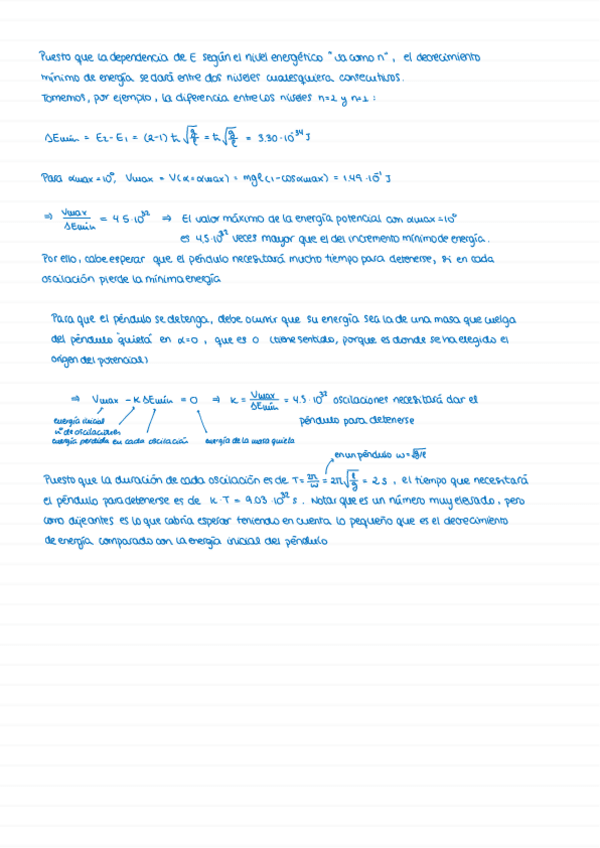 Puesto que la dependencia de E según el nivel energético "va como n", el decrecimiento
mínimo de energía se dará entre dos niveles cualesquiera consecutivos.
Tomemos, por ejemplo, la diferencia entre los niveles n=2 y n=1:
ΔEmín = E₂ - E₁ = (2-1) ħ √(g/ℓ) = ħ √(g/ℓ) = 3.30·10⁻³⁴ J
Para αmax = 10°, Vmax = V(α=αmax) = mgℓ(1-cosαmax) = 1.49·10⁻¹ J
⇒ Vmax/ΔEmín = 4.5·10³² ⇒ El valor máximo de la energía potencial con αmax=10°
es 4.5·10³² veces mayor que el del incremento mínimo de energía.
Por ello, cabe esperar que el péndulo necesitará mucho tiempo para detenerse, si en cada
oscilación pierde la mínima energía
Para que el péndulo se detenga, debe ocurrir que su energía sea la de una masa que cuelga
del péndulo "quieta" en α=0, que es 0 (tiene sentido, porque es donde se ha elegido el
origen del potencial)
⇒ Vmax - K ΔEmín = 0 ⇒ K = Vmax/ΔEmín = 4.5·10³² oscilaciones necesitará dar el
péndulo para detenerse
energía inicial
nº de oscilaciones
energía perdida en cada oscilación energía de la masa quieta
en un péndulo ω=√(g/ℓ)
Puesto que la duración de cada oscilación es de T = 2π/ω = 2π √(ℓ/g) = 2 s, el tiempo que necesitará
el péndulo para detenerse es de K·T = 9.03·10³² s. Notar que es un número muy elevado, pero
como dije antes es lo que cabría esperar teniendo en cuenta lo pequeño que es el decrecimiento
de energía comparado con la energía inicial del péndulo